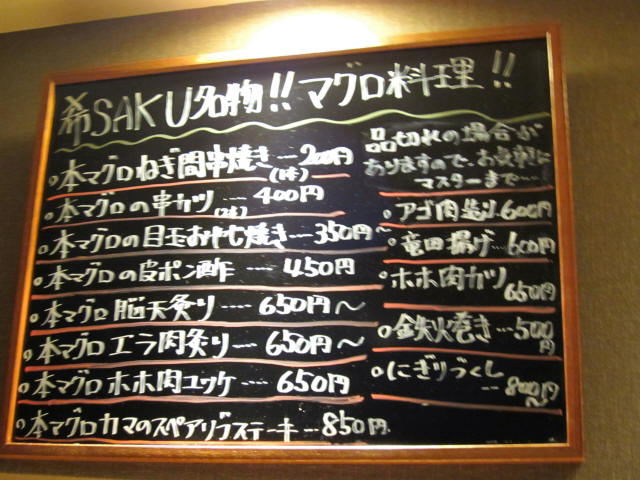 希SAKU名物!! マグロ料理!!
本マグロねぎ間串焼き…200円
(1本)
本マグロの串カツ…400円
(2本)
本マグロの目玉おやじ焼き…350円~
本マグロの皮ポン酢…450円
本マグロ脳天炙り…650円~
本マグロエラ肉炙り…650円~
本マグロホホ肉ユッケ…650円
本マグロカマのスペアリブステーキ…850円
品切れの場合が
ありますので、お気軽に
マスターまで…
アゴ肉造り600円
竜田揚げ…600円
ホホ肉カツ
650円
鉄火巻き…500
円
にぎりづくし
…800円
~